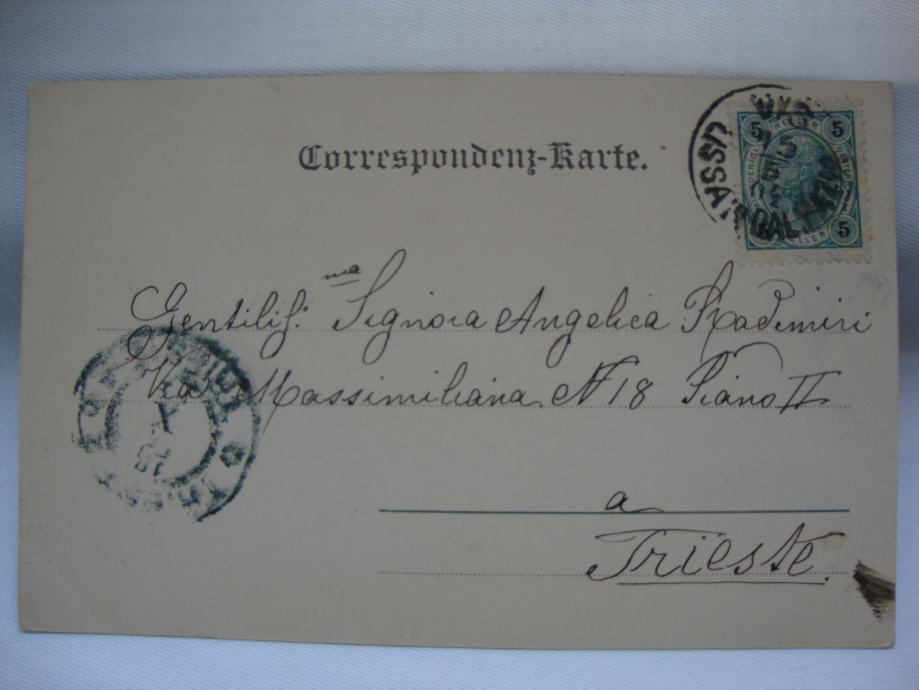 Correspondenz-Karte.
5 HELLER 5
5
LUSSIN
Gentiliss:ma Signora Angelica Radimiri
Via Massimiliana N 18 Piano II
a
Trieste.